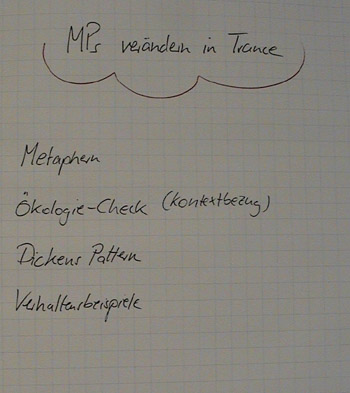 MPs verändern in Trance
Metaphern
Ökologie-Check (Kontextbezug)
Dickens Pattern
Verhaltensbeispiele